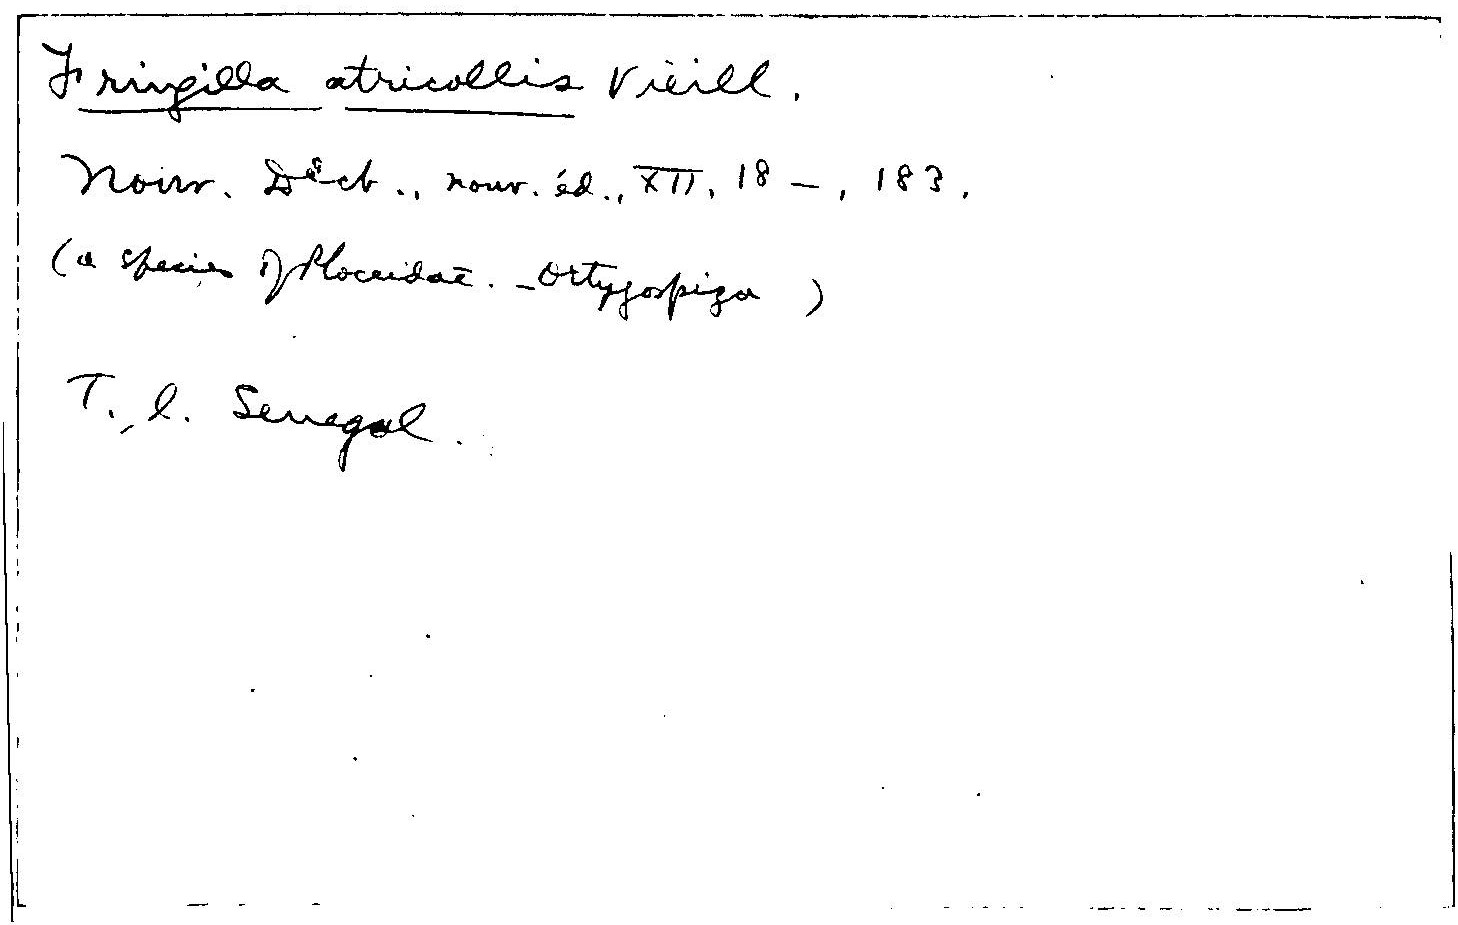 Fringilla atricollis Vieill.
Nouv. Dict., nouv. éd., XII, 18 –, 183.
(a species of Ploceidae. – Ortygospiza )
T. l. Senegal.